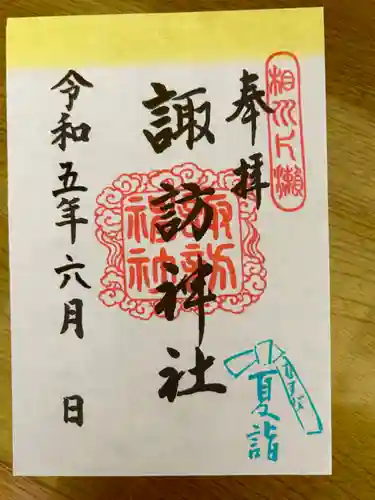 相州片瀬
奉拝
諏訪神社
諏訪神社
夏詣
令和五年六月　日